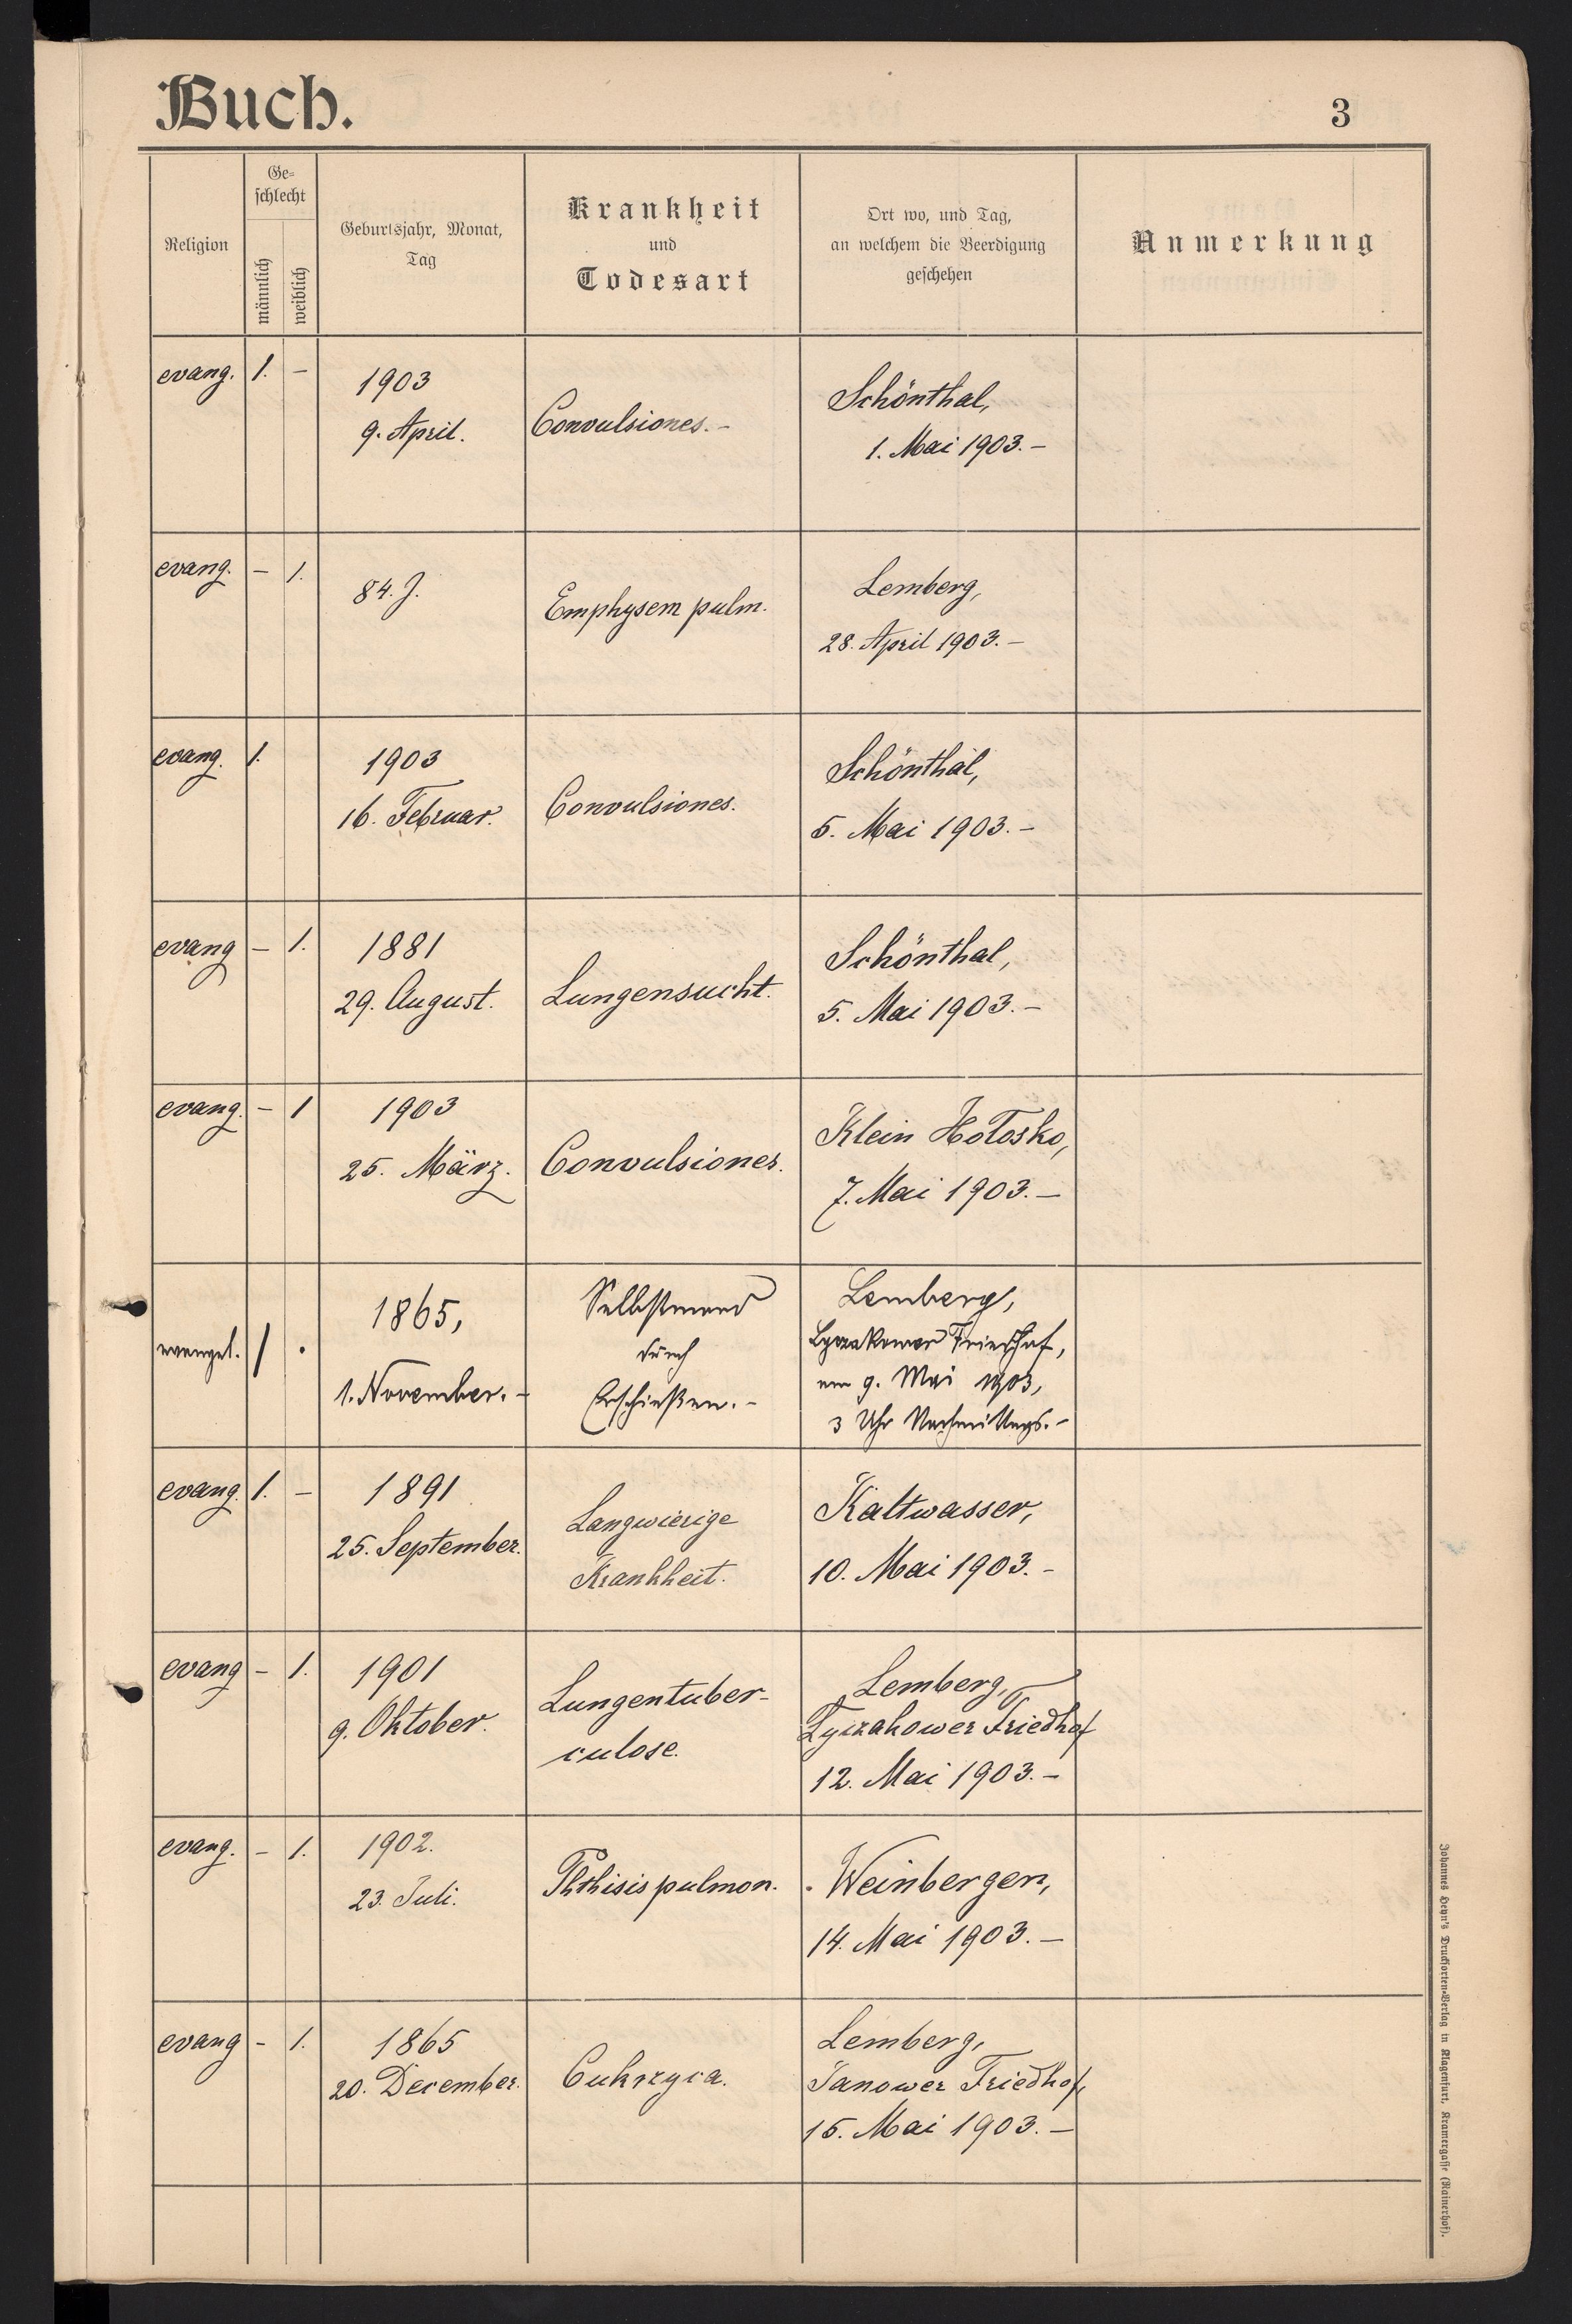 Buch.
3
Religion
Ge-
schlecht
männlich
weiblich
Geburtsjahr, Monat,
Tag
Krankheit
und
Todesart
Ort wo, und Tag,
an welchem die Beerdigung
geschehen
Anmerkung
evang. 1. –
1903
9. April.
Convulsiones. –
Schönthal,
1. Mai 1903. –
evang. – 1.
84. J.
Emphysem pulm.
Lemberg,
28. April 1903. –
evang. 1.
1903
16. Februar.
Convulsiones.
Schönthal,
5. Mai 1903. –
evang – 1.
1881
29. August.
Lungensucht.
Schönthal,
5. Mai 1903. –
evang. – 1
1903
25. März.
Convulsiones.
Klein Hołosko,
7. Mai 1903. –
evangel. 1 .
1865,
1. November. –
Selbstmord
durch
Erschießen. –
Lemberg,
Lyczakower Friedhof,
am 9. Mai 1903,
3 Uhr Nachmittags. –
evang. 1. –
1891
25. September.
Langwierige
Krankheit.
Kaltwasser,
10. Mai 1903. –
evang – 1.
1901
9. Oktober.
Lungentuber-
culose.
Lemberg,
Łyczakower Friedhof
12. Mai 1903. –
evang. – 1.
1902.
23. Juli.
Phthisis pulmon.
Weinbergen,
14. Mai 1903. –
evang – 1.
1865
20. December.
Cukrzyca.
Lemberg,
Janower Friedhof,
15. Mai 1903. –
Johannes Heyn's Drucksorten-Verlag in Klagenfurt, Kramergasse (Rainerhof).